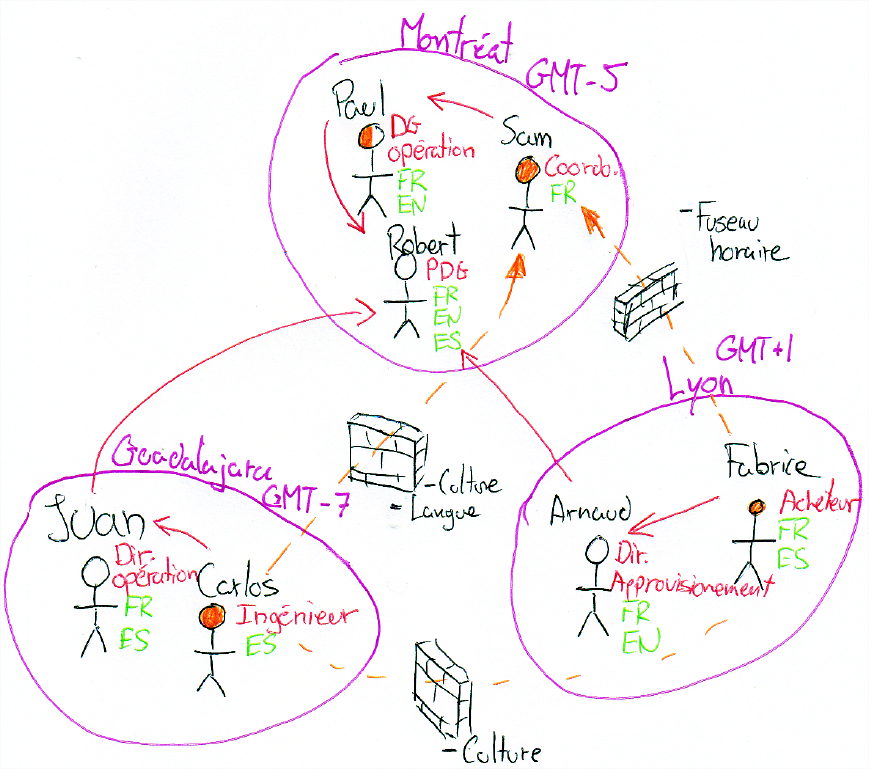 Montréal
GMT-5
Paul
DG
opération
FR
EN
Sam
Coordo.
FR
Robert
PDG
FR
EN
ES
- Fuseau
horaire
GMT+1
Lyon
Fabrice
Acheteur
FR
ES
Arnaud
Dir.
Approvisionement
FR
EN
- Culture
- Langue
Guadalajara
GMT-7
Juan
Dir.
opération
FR
ES
Carlos
Ingénieur
ES
- Culture